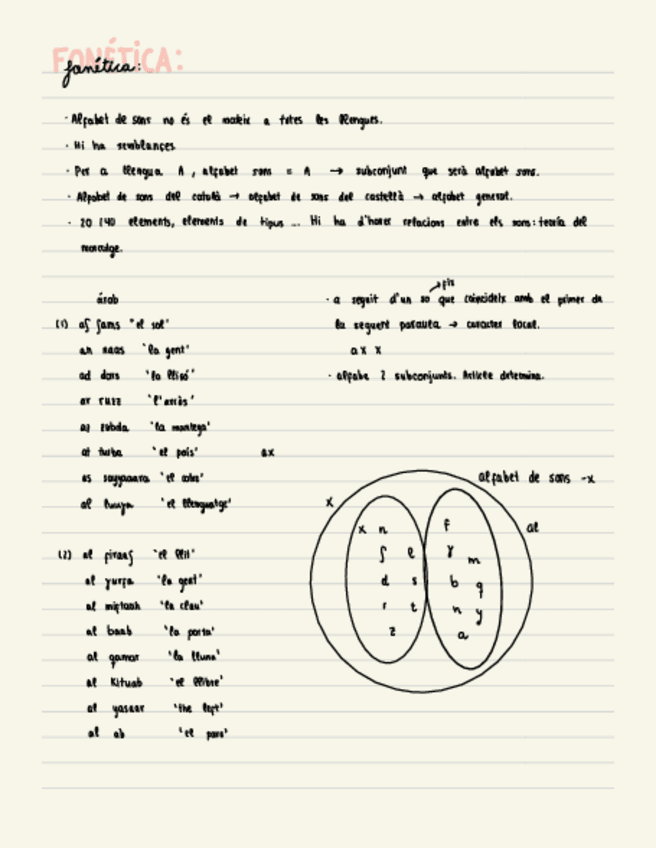 FONÉTICA:
fonética:
· Alfabet de sons no és el mateix a totes les llengues.
· Hi ha semblances
· Per a llengua A, alfabet sons = A → subconjunt que serà alfabet sons.
· Alfabet de sons del català → alfabet de sons del castellà → alfabet general.
· 20 140 elements, elements de tipus ... Hi ha d'haver relacions entre els sons: teoría del
àrab
(1) aʃ ʃams "el sol"
an naas 'la gent'
ad dars 'la lliçó'
ar ruzz 'l'arròs'
az zubda 'la mantega'
at turba 'el país'
as sayyaaara 'el cotxe'
al 'el llenguatge'
(2) al firaaʃ 'el llit'
al yurfa 'la gent'
al miftaah 'la clau'
al baab 'la porta'
al gamar 'la lluna'
al Kituab 'el llibre'
al yasaar 'the left'
al ab 'el pare'
· a seguit d'un so que coincideix amb el primer de
la seguent paraula → caracter local.
a x x
· alfabe 2 subconjunts. Article determina.
ax
alfabet de sons -x
x
al
x n
ʃ l
d s
r t
z
f
ɣ m
b q
n y
a